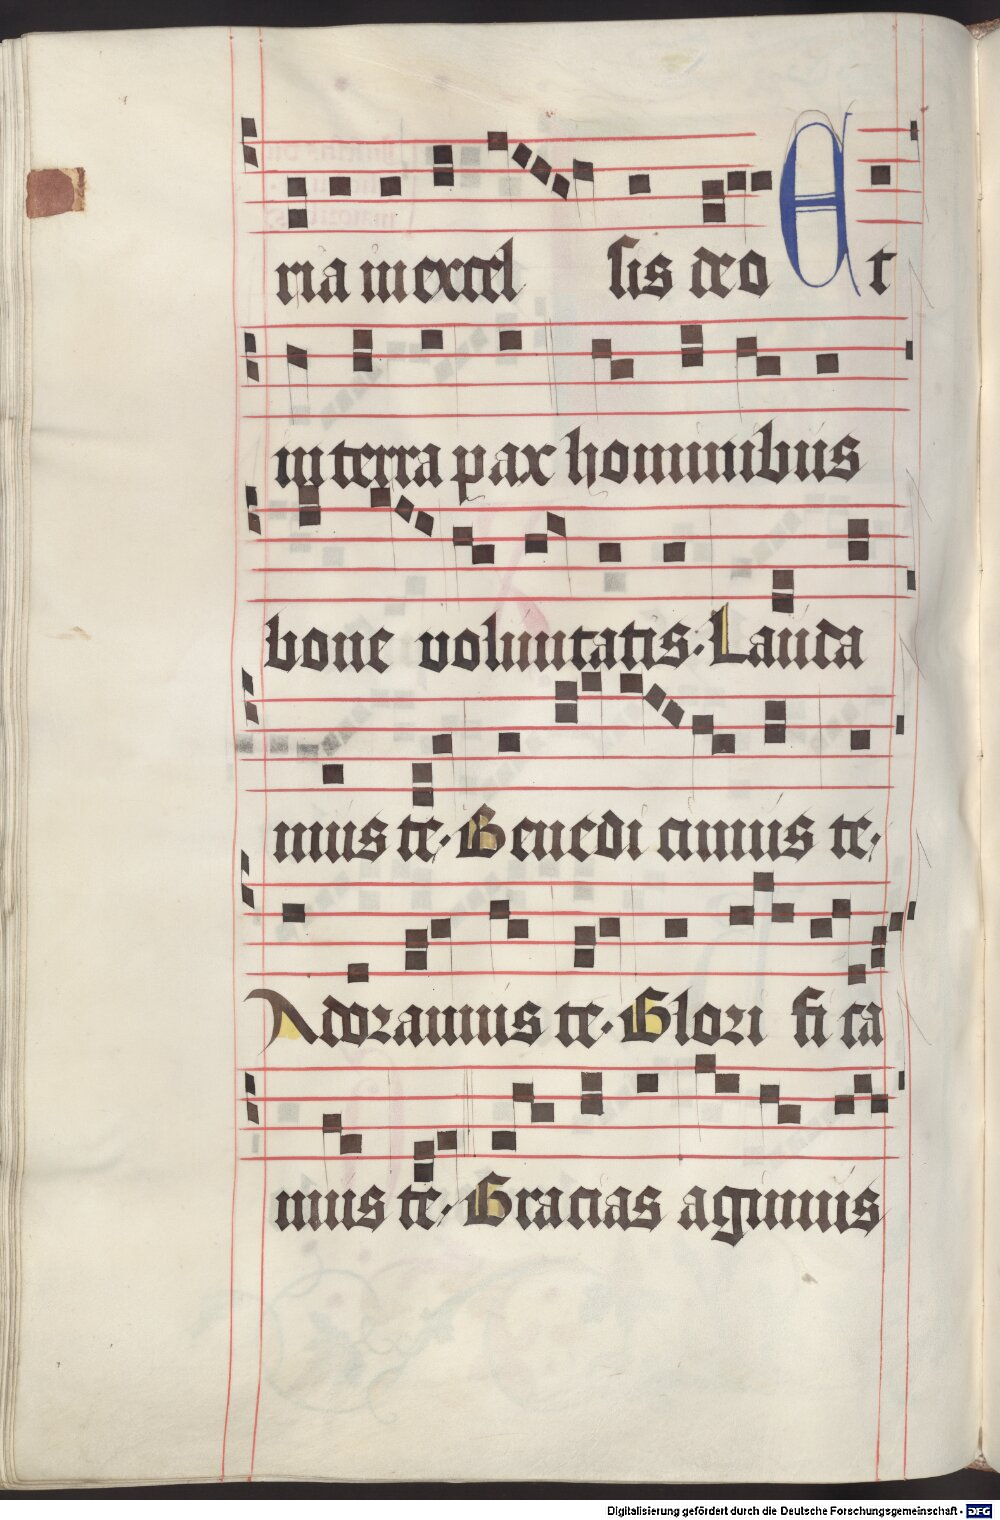 ria in excel sis deo Et
in terra pax hominibus
bone voluntatis. Lauda
mus te. Benedi cimus te.
Adoramus te. Glori fi ca
mus te. Gracias agimus
Digitalisierung gefördert durch die Deutsche Forschungsgemeinschaft - DFG